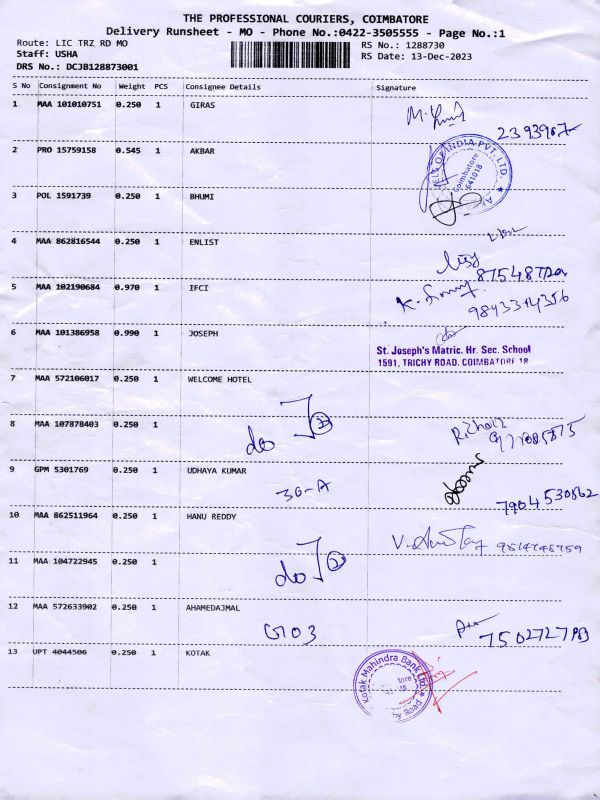 THE PROFESSIONAL COURIERS, COIMBATORE
Delivery Runsheet - MO - Phone No.:0422-3505555 - Page No.:1
Route: LIC TRZ RD MO
RS No.: 1288730
Staff: USHA
RS Date: 13-Dec-2023
DRS No.: DCJB128873001
S No Consignment No Weight PCS Consignee Details Signature
1 MAA 101010751 0.250 1 GIRAS
2 PRO 15759158 0.545 1 AKBAR
OF INDIA PVT. LTD.
Coimbatore
641018
3 POL 1591739 0.250 1 BHUMI
4 MAA 862816544 0.250 1 ENLIST
5 MAA 102190684 0.970 1 IFCI
9843314356
6 MAA 101386958 0.990 1 JOSEPH
St. Joseph's Matric. Hr. Sec. School
1591, TRICHY ROAD, COIMBATORE 18
7 MAA 572106017 0.250 1 WELCOME HOTEL
8 MAA 107878403 0.250 1
do 2
9 GPM 5301769 0.250 1 UDHAYA KUMAR
30-A
7904530862
10 MAA 862511964 0.250 1 HANU REDDY
11 MAA 104722945 0.250 1
do 2
12 MAA 572633902 0.250 1 AHAMEDAJMAL
G103
13 UPT 4044506 0.250 1 KOTAK
Kotak Mahindra Bank Ltd.
Road